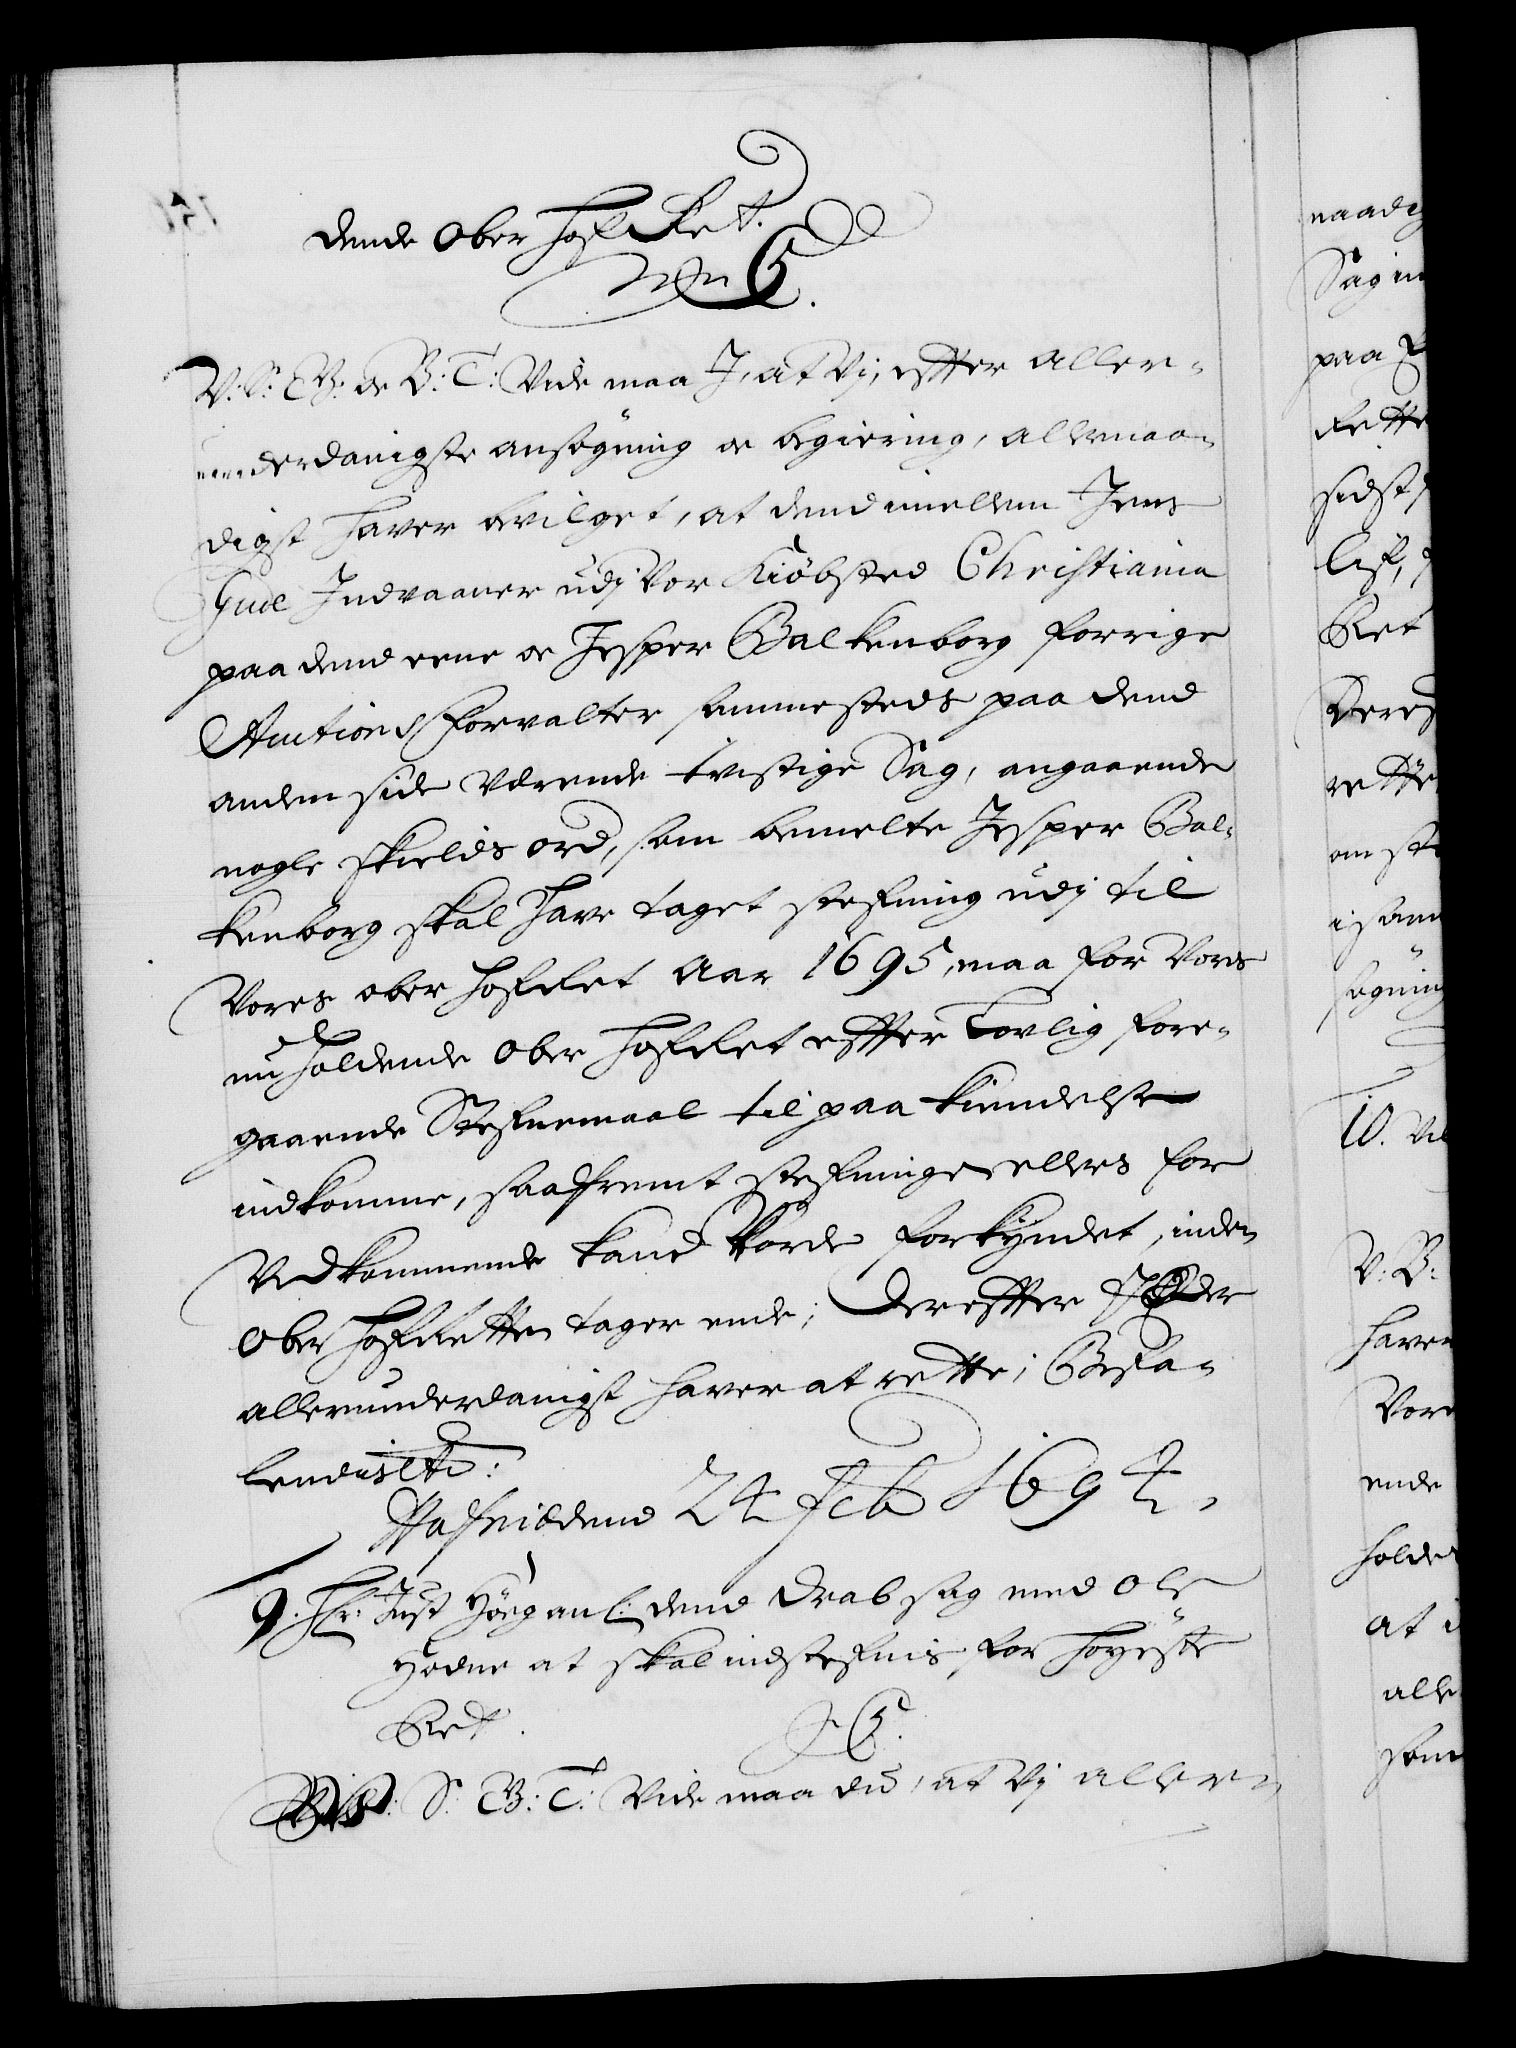 dende Ober Hof Ret.
C5.
V: S: G: B: de B: T: Vide maa J, at Vj, efter aller-
underdanigste ansøgning oc begiering, allernaa-
digst hafver bevilget, at dend imellem Jens
Gude Indvaaner udj Vor Kiøbsted Christiania
paa dend eene oc Jesper Balkenborg forrige
Auctions forvalter sammesteds paa dend
anden side Værende tvistige Sag, angaaende
nogle skields ord, som bemelte Jesper Bal-
kenborg skal have taget stefning udj til
Vores ober hof Ret Aar 1695, maa for Vores
nu holdende Ober Hof Ret efter Lovlig fore-
gaaende Stefnemaal til paa kiendelse
indkomme, saafremt stefningen ellers for
Vedkommende kand Vorde forkyndet, inden
Ober hof Retten tager ende; Derefter J Eder
allerunderdanigst hafver at rette; Befa-
lendis etc:
Hafn: dend 24 Feb 1694.
9. Hr: Just Høeg anl: dend Drab sag med Ole
Hodne at skal indstefnis for høyeste
Ret. C5.
S: G: B: T: Vide maa du, at Vj aller-
naadig
Sag in
paa
Rette
sidst
lif,
Ret
Deres
rette
om st
i sam
søgning
10. Vel
V: B:
hafver
Vore
ende
holde
at i
alle
som